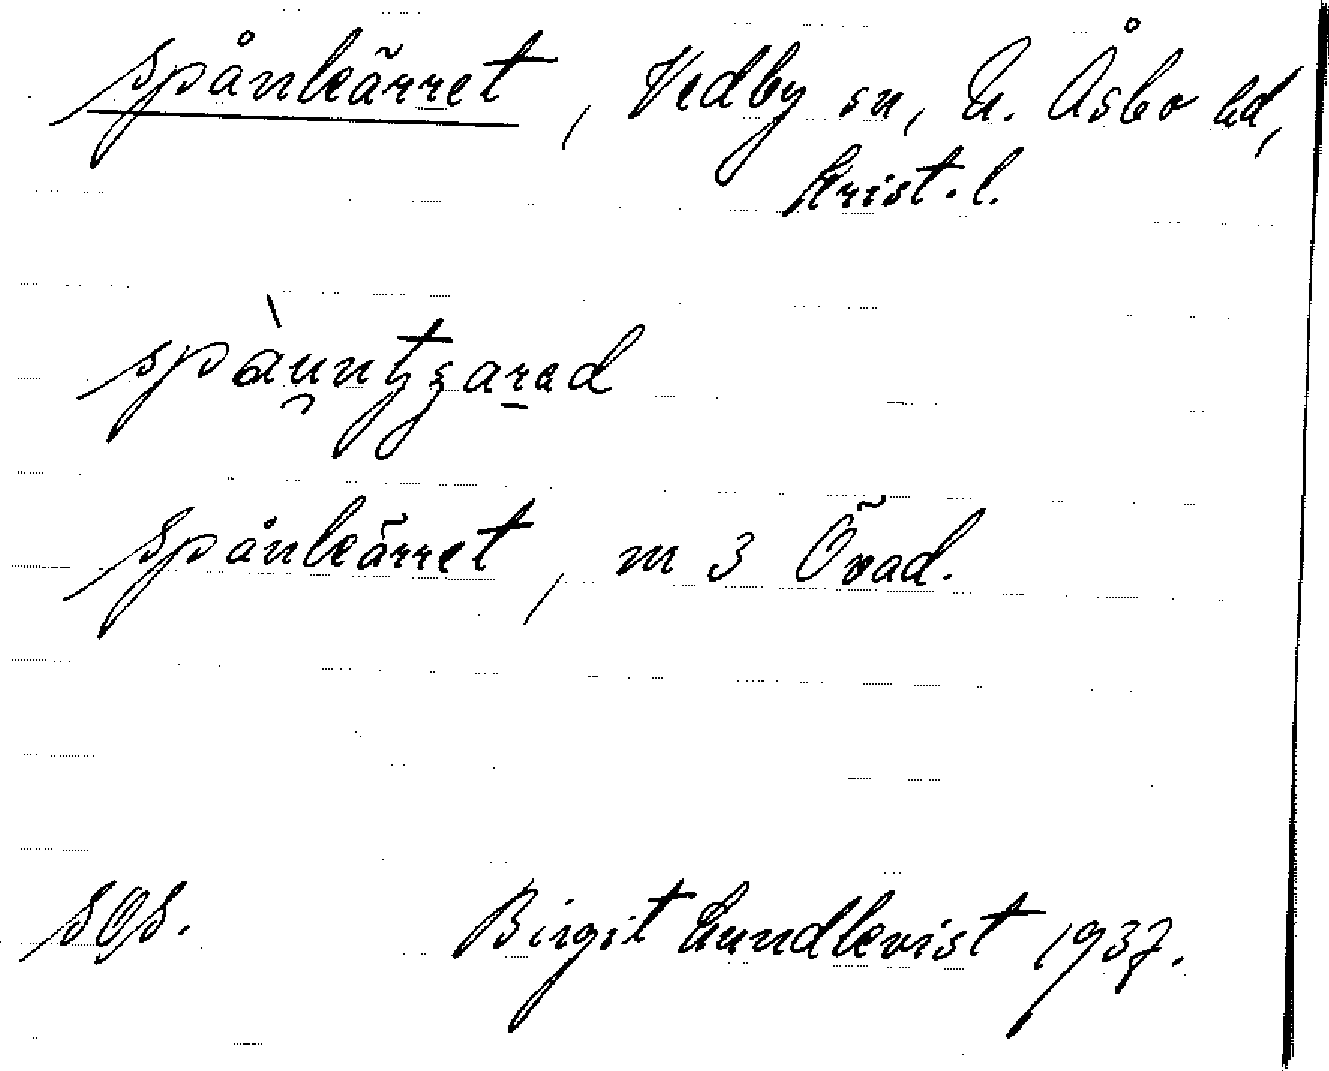 Spånkärret, Vedby sn, N. Åsbo hd,
Krist. l.
Spånkärret, m 3 Övad.
SOS. Birgit Lundkvist 1937.